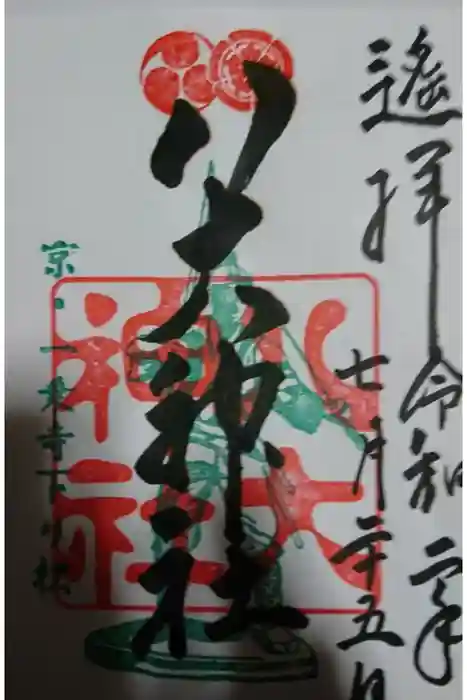 遙拝 令和二年
七月二十五日
八大神社
八大
神社
京・一乗寺下り松